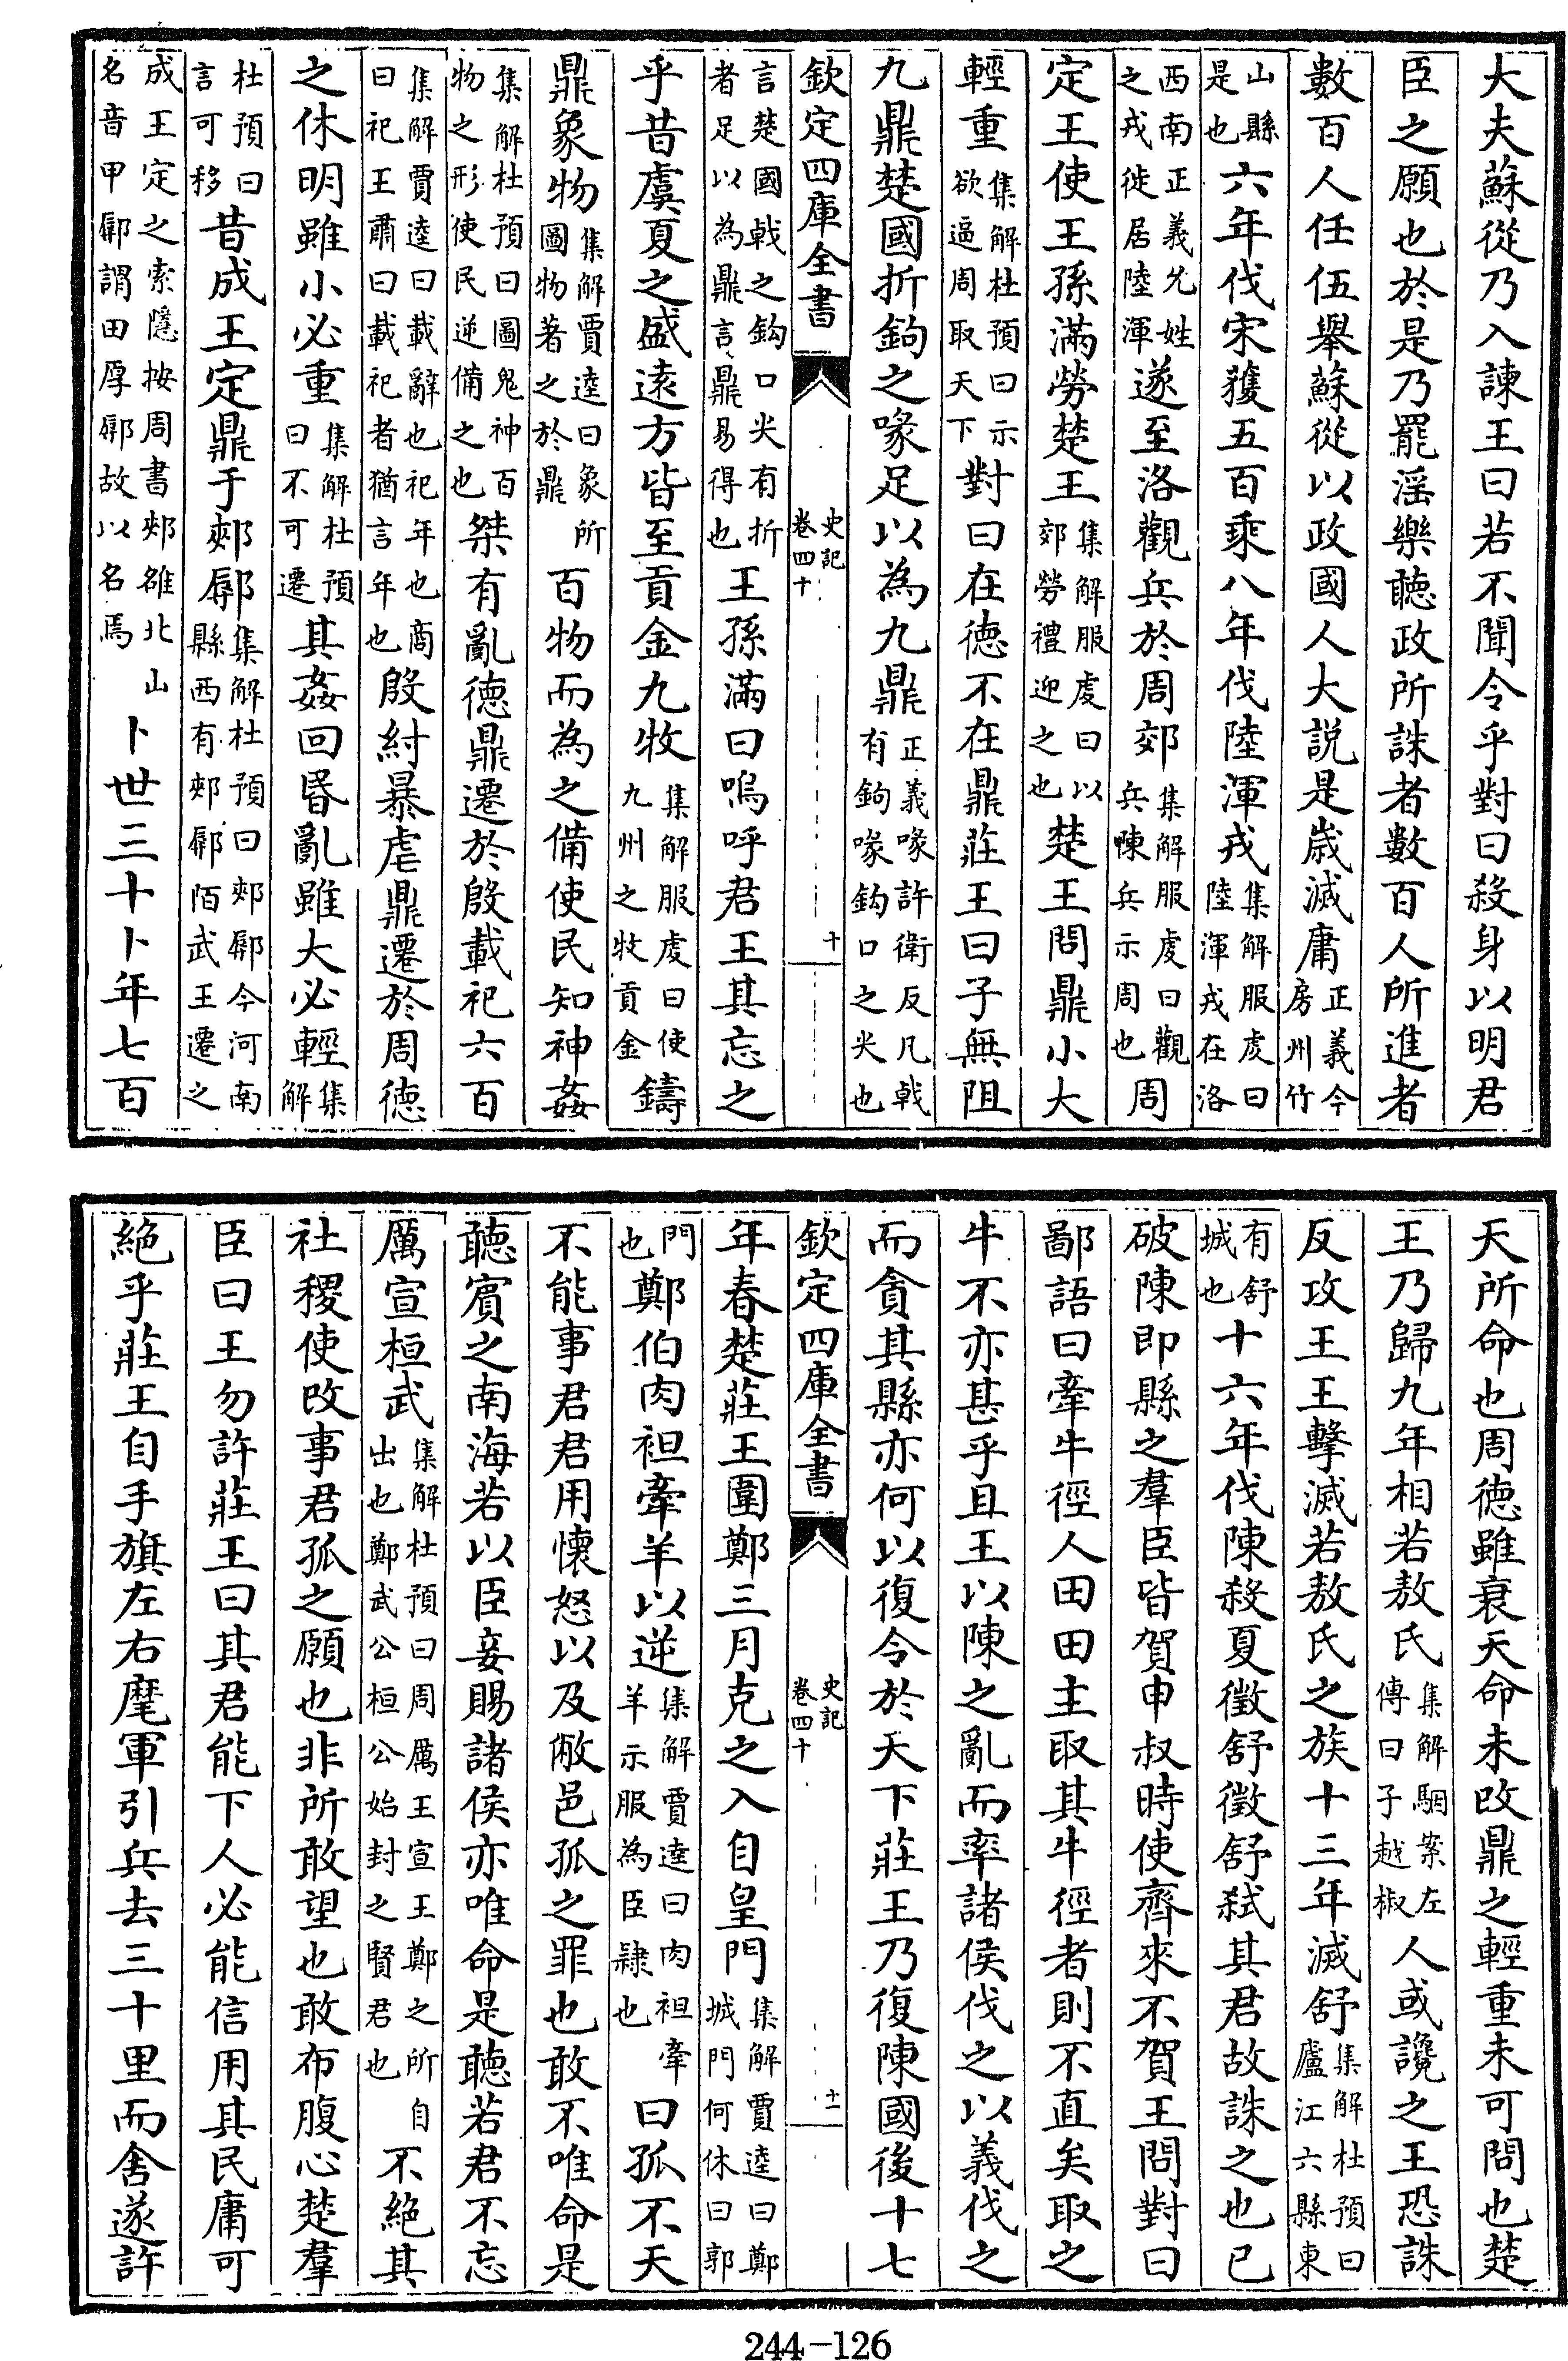 大夫蘇從乃入諫王曰若不聞令乎對曰殺身以明君
臣之願也於是乃罷淫樂聽政所誅者數百人所進者
數百人任伍舉蘇從以政國人大説是歳滅庸正義今房州竹
山縣是也六年伐宋獲五百乘八年伐陸渾戎集解服虔曰陸渾戎在洛
西南正義允姓之戎徙居陸渾遂至洛觀兵於周郊集解服虔曰觀兵陳兵示周也周
定王使王孫滿勞楚王集解服虔曰以郊勞禮迎之也楚王問鼎小大
輕重集解杜預曰示欲逼周取天下對曰在徳不在鼎莊王曰子無阻
九鼎楚國折鉤之喙足以為九鼎正義喙許衛反凡戟有鉤喙鉤口之尖也
欽定四庫全書 史記卷四十 十
言楚國戟之鉤口尖有折者足以為鼎言鼎易得也王孫滿曰嗚呼君王其忘之
乎昔虞夏之盛逺方皆至貢金九牧集解服虔曰使九州之牧貢金鑄
鼎象物集解賈逵曰象所圖物著之於鼎百物而為之備使民知神姦
集解杜預曰圖鬼神百物之形使民逆備之也桀有亂徳鼎遷於殷載祀六百
集解賈逵曰載辭也祀年也商曰祀王肅曰載祀者猶言年也殷紂暴虐鼎遷於周徳
之休明雖小必重集解杜預曰不可遷其姦回昏亂雖大必輕集解
杜預曰言可移昔成王定鼎于郟鄏集解杜預曰郟鄏今河南縣西有郟鄏陌武王遷之
成王定之索隱按周書郟雒北山名音甲鄏謂田厚鄏故以名焉卜世三十卜年七百
天所命也周徳雖衰天命未改鼎之輕重未可問也楚
王乃歸九年相若敖氏集解駰案左傳曰子越椒人或讒之王恐誅
反攻王王擊滅若敖氏之族十三年滅舒集解杜預曰廬江六縣東
有舒城也十六年伐陳殺夏徵舒徵舒弑其君故誅之也已
破陳即縣之羣臣皆賀申叔時使齊來不賀王問對曰
鄙語曰牽牛徑人田田主取其牛徑者則不直矣取之
牛不亦甚乎且王以陳之亂而率諸侯伐之以義伐之
而貪其縣亦何以復令於天下莊王乃復陳國後十七
欽定四庫全書 史記卷四十 十一
年春楚莊王圍鄭三月克之入自皇門集解賈逵曰鄭城門何休曰郭
門也鄭伯肉袒牽羊以逆集解賈逵曰肉袒牽羊示服為臣隷也曰孤不天
不能事君君用懷怒以及敝邑孤之罪也敢不唯命是
聽賓之南海若以臣妾賜諸侯亦唯命是聽若君不忘
厲宣桓武集解杜預曰周厲王宣王鄭之所自出也鄭武公桓公始封之賢君也不絶其
社稷使改事君孤之願也非所敢望也敢布腹心楚羣
臣曰王勿許莊王曰其君能下人必能信用其民庸可
絶乎莊王自手旗左右麾軍引兵去三十里而舍遂許
244-126